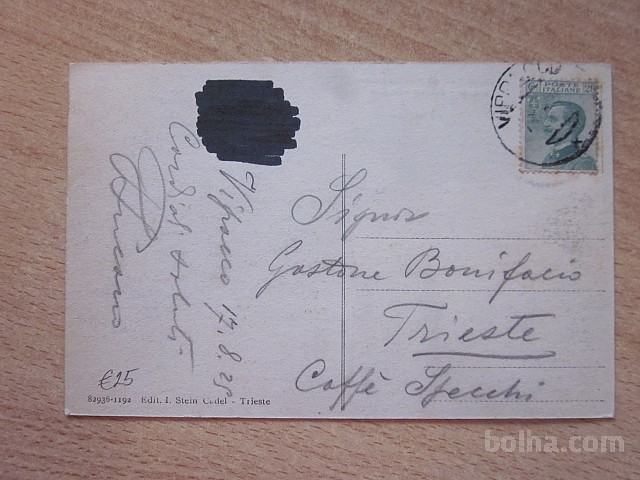 Vipacco 17.8.25
Cordiali saluti
VIPACCO
POSTE
ITALIANE
Signor
Gastone Bonifacio
Trieste
Caffè Specchi
€25
82936-1192 Edit. I. Stein Cadel - Trieste
bolha.com